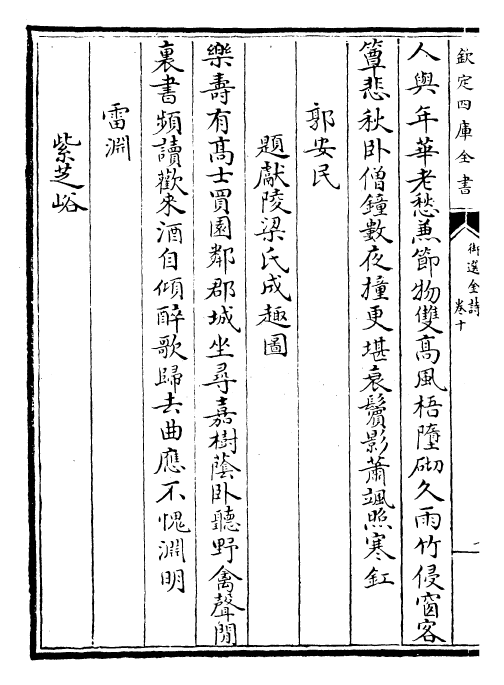 欽定四庫全書
御選金詩
卷十
人與年華老愁兼節物雙高風梧墮砌久雨竹侵窗客
簟悲秋卧僧鐘數夜撞更堪哀鬢影蕭颯照寒釭
郭安民
題獻陵梁氏成趣圖
樂壽有高士買園鄰郡城坐尋嘉樹蔭卧聽野禽聲閒
裏書頻讀歡来酒自傾醉歌歸去曲應不愧淵明
雷淵
紫芝峪